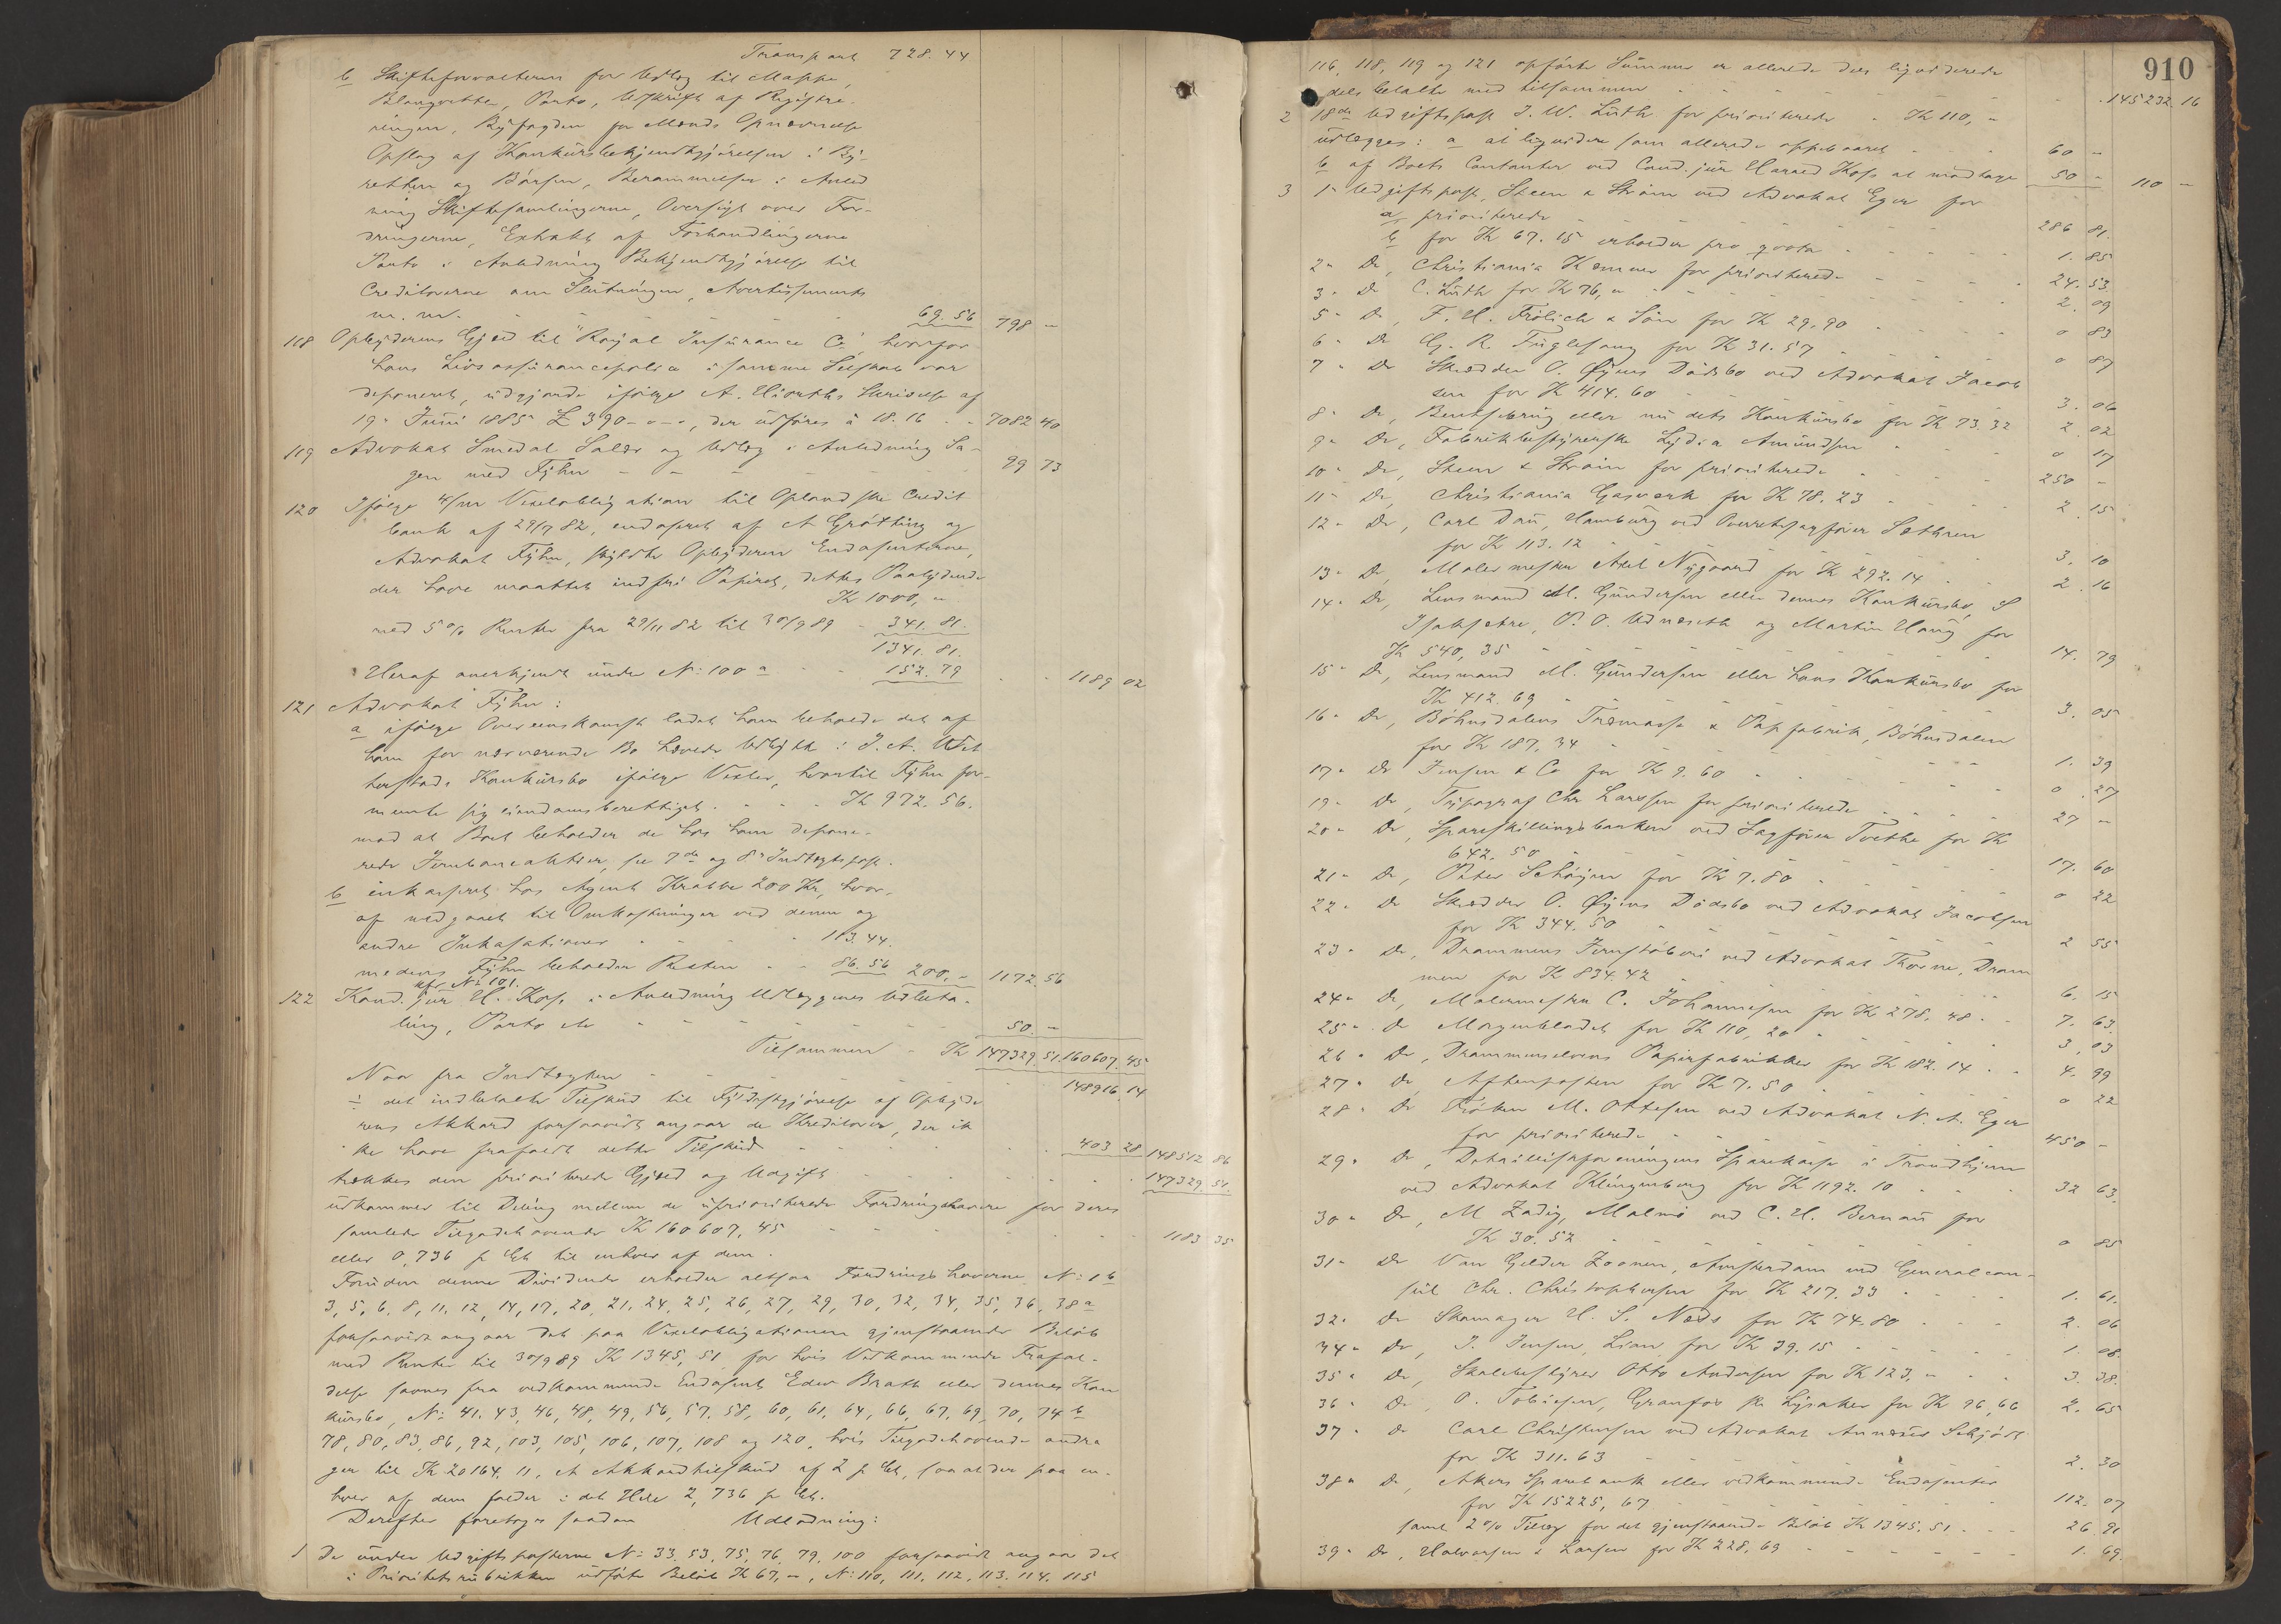 Transport 728.44
b Skifteforvalteren for Udlæg til Mappe,
Blanqvetter, Porto, Udskrift af Registre-
ringen, Byfogden for Mænds Opnævnelse
Opslag af Konkursbekjendtgjörelsen i By-
retten og Börsen, Berammelsen i Anled
ning Skiftesamlingerne, Oversigt over For-
dringerne, Extrakt af Forhandlingerne
Porto i Anledning Bekjendtgjörelse til
Creditorerne om Slutningen, Avertissements
m. m. - - - 69.56 798 -
118 Opbyderens Gjæld til "Royal Insurance Co", hvorfor
hans Livsassurancepolice i samme Selskab var
deponeret, udgjorde ifölge A. Hiorths Skrivelse af
19 Juni 1885 £ 390-0-0, der udföres à 18.16 . . 7082 40
119 Advokat Smedal Salær og Udlæg i Anledning Sa-
gen med Fyhn - - - 99 73
120 Ifölge 4/mr Vexelobligation til Oplandske Credit
bank af 29/7 82, endosseret af A Grötting og
Advokat Fyhn, skyldte Opbyderen Endosenterne,
der have maattet indfri Papiret, dettes Paalydende
Kr 1000, "
med 5% Renter fra 29/11 82 til 30/9 89 - 341.81.
1341.81.
Heraf anerkjendt under N: 100 a . . 152.79 . . 1189 02
121 Advokat Fyhn:
a ifölge Overeenskomst ladet ham beholde det af
ham for nærværende Bo hævede Udbytte i J. A. Wet
terstads Konkursbo ifölge Vexler, hvortil Fyhn for-
meente sig eiendomsberettiget . . . Kr 972.56.
mod at Boet beholder de hos ham depone-
rede Jernbaneaktier, se 7de og 8de Indtægtspost.
b inkasseret hos Agent Krabbe 200 Kr, hvor-
af medgaaet til Omkostninger ved denne og
andre Inkassationer . . . 113.44.
medens Fyhn beholder Resten . . 86.56 200,- 1172.56
cfr N: 101.
122 Kand. jur H. Koss i Anledning Udlæggenes Udbeta-
ling, Porto etc - - - 50.-
Tilsammen - Kr 147329.51. 160607.45
Naar fra Indtægten - - - 148916.14
÷ det indbetalte Tilskud til Fyldestgjörelse af Opbyde
rens Akkord forsaavidt angaar de Kreditorer, der ik
ke have frafaldt dette Tilskud . . . 403 28 148512 86
trækkes den prioriterede Gjæld og Udgift . . . 147329.51.
udkommer til Deling mellem de uprioriterede Fordringshavere for deres
samlede Tilgodehavende Kr 160607,45 . . . 1183 35
eller 0,736 p Ct til enhver af dem.
Foruden denne Dividende erholder altsaa Fordringshaverne N: 1 b
3, 5, 6, 8, 11, 12, 14, 17, 20, 21, 24, 25, 26, 27, 29, 30, 32, 34, 35, 36, 38 a
forsaavidt angaar det paa Vexelobligationen gjenstaaende Belöb
med Renter til 30/9 89 Kr 1345,51 for hvis Vedkommende Frafal-
delse savnes fra vedkommende Endosent Edw Brath eller dennes Kon
kursbo, N: 41, 43, 46, 48, 49, 56, 57, 58, 60, 61, 64, 66, 67, 69, 70, 74 b
78, 80, 83, 86, 92, 103, 105, 106, 107, 108 og 120, hvis Tilgodehavende andra
ger til Kr 20164,11, et Akkordtilskud af 2 p Ct, saa at der paa en-
hver af dem falder i det Hele 2,736 p Ct.
Derefter foretoges saadan Udlodning:
1 De under Udgiftsposterne N: 33, 53, 75, 76, 79, 100 forsaavidt angaar det
i Prioritetsrubrikken udförte Belöb Kr 67,-, N: 110, 111, 112, 113, 114, 115
910
116, 118, 119 og 121 opförte Summer er allerede dels liqviderede
dels betalte med tilsammen - - - 145232.16
2 18de Udgiftspost J. W. Lüth for prioriterede . Kr 110, -
udlægges: a at liqvidere som allerede oppebaaret . . . 60 -
b af Boets Contanter ved Cand. jur Harald Koss at modtage 50 - 110 -
3 1ste Udgiftspost, Steen & Ström ved Advokat Eger for
a prioriterede - - - 286 81.
b for Kr 67.15 erholder pro qvota . . . 1.85
2 " Do, Christiania Kæmner for prioriterede - - 24.53.
3 " Do C. Lüth for Kr 76, " - - - 2.09
5 " Do, F. H. Frölich & Sön for Kr 29.90 . . . 0 83
6 " Do G. R. Fuglesang for Kr 31.57 . . . 0 87
7 " Do Skrædder O. Øyens Dödsbo ved Advokat Jacob
sen for Kr 414.60 - - - 3.06
8 " Do, Bentsebrug eller nu dets Konkursbo for Kr 73.32 2.02
9 " Do, Fabrikbestyrerske Lydia Amundsen . . . 0 17
10 " Do, Steen & Ström for prioriterede . . . 250 -
11 " Do, Christiania Gasverk for Kr 78.23 . . . 2 15
12 " Do, Carl Dau, Hamburg ved Overretssagförer Sethren
for Kr 113.12 - - - 3.10
13 " Do, Malermester Axel Nygaard for Kr 292.14 . . 2.16
14 " Do, Lensmand M. Gundersen eller dennes Konkursbo, S
Isaksætre, P. O. Udnæseth og Martin Haug for
Kr 540,35 - - - 14.79
15 " Do, Lensmand M. Gundersen eller hans Konkursbo for
Kr 412.69 - - - 3.05
16 " Do, Böhnsdalens Træmasse & Papfabrik, Böhnsdalen
for Kr 187,34 - - - 1.39
17 " Do Jensen & Co for Kr 9.60 . . . 0.27
19 " Do, Typograf Chr Larsen for prioriterede . . . 27 -
20 " Do, Spareskillingsbanken ved Sagförer Tvethe for Kr
642.50 - - - 17.60
21 " Do, Peter Schöyen for Kr 7.80 . . . 0 22
22 " Do Skrædder O. Øyens Dödsbo ved Advokat Jacobsen
for Kr 344.50 - - - 2 55
23 " Do, Drammens Jernstöberi ved Advokat Thorne, Dram
men for Kr 834.42 - - - 6.15
24 " Do, Malermester C. Johannesen for Kr 278.48 . . 7.63.
25 " Do Morgenbladet for Kr 110,20 . . . 3.03
26 " Do, Drammenselvens Papirfabrikker for Kr 182.14 . . 4.99
27 " Do Aftenposten for Kr 7.50 . . . 0 22
28 " Do Fröken M. Ottesen ved Advokat N. A. Eger
for prioriterede - - - 450 -
29 " Do, Detaillistforeningens Sparekasse i Trondhjem
ved Advokat Klingenberg for Kr 1192.10 . . . 32 63.
30 " Do, M Zadig, Malmö ved C. H. Bernau for
Kr 30.52 - - - 0 85
31 " Do Van Gelder Zoonen, Amsterdam ved Generalcon-
sul Chr. Christophersen for Kr 217.33 . . . 1.61.
32 " Do Skomager H. S. Næss for Kr 74.80 . . . 2.06
34 " Do, J. Jensen, Lian, for Kr 39.15 . . . 1.08.
35 " Do, Skolebestyrer Otto Andersen for Kr 123, " . . 3.38.
36 " Do, O. Tobiesen, Granfos pr Lysaker for Kr 96,66 2.65
37 " Do Carl Christensen ved Advokat Annæus Schjödt
for Kr 311.63 - - - 2.30
38 " Do, Akers Sparebank eller vedkommende Endosenter
for Kr 15225,67 - - - 112.07
samt 2% Tillæg for det gjenstaaende Belöb Kr 1345.51 . . . 26.91
39 " Do, Halvorsen & Larsen for Kr 228,69 - - - 1.69.